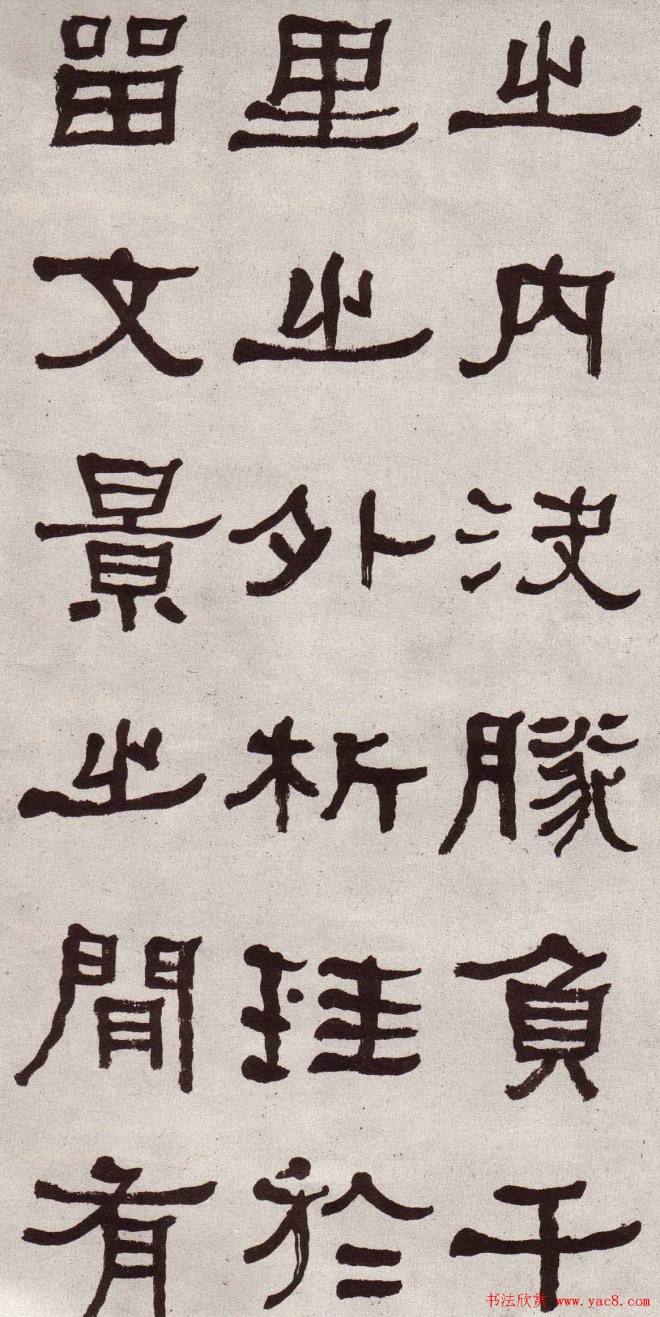 之内決勝負千
里之外析珪於
留文景之間有
书法欣赏 www.yac8.com